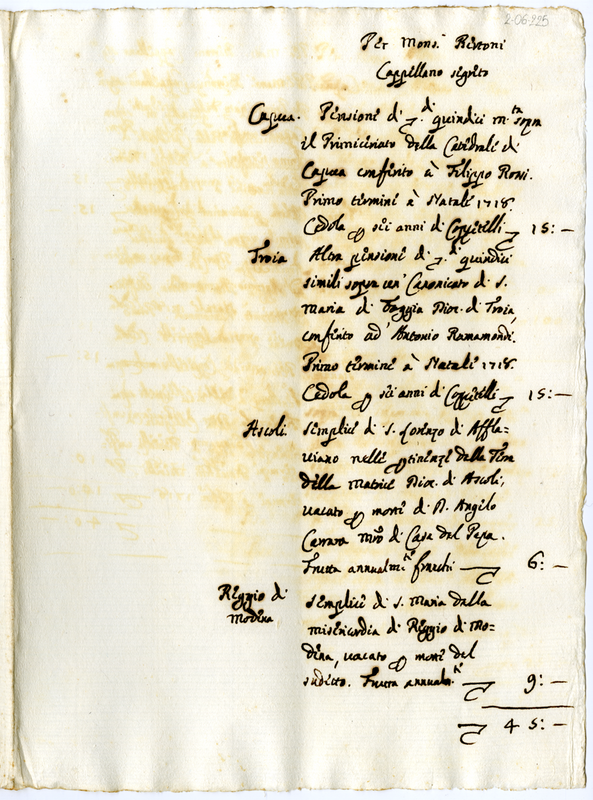 2-06-225
Per Mons.r Ristori
Cappellano segreto
Capua. Pensione di quindici m.ta sopra
il Primiceriato della Catedrale di
Capua conferito à Filippo Rossi.
Primo termine à Natale 1718.
Cedola p sei anni di Coppitelli 15:—
Troia Altra pensione di quindici
simili sopra un' Canonicato di S.
Maria di Foggia Dioc. di Troia,
conferito ad' Antonio Ramamondi.
Primo termine à Natale 1718.
Cedola p sei anni di Coppitelli 15:—
Ascoli. Semplice di S. Lorenzo di Affla=
viano nelle ptinenze della Terra
della Matrice Dioc. di Ascoli,
vacato p morte di D. Angelo
Carrara di Casa del Papa.
Frutta annualm.te 6:—
Reggio di
Modena
Semplice di S. Maria della
misericordia di Reggio di Mo=
dena, vacato p morte del
sudetto. Frutta annualm.te 9:—
45:—